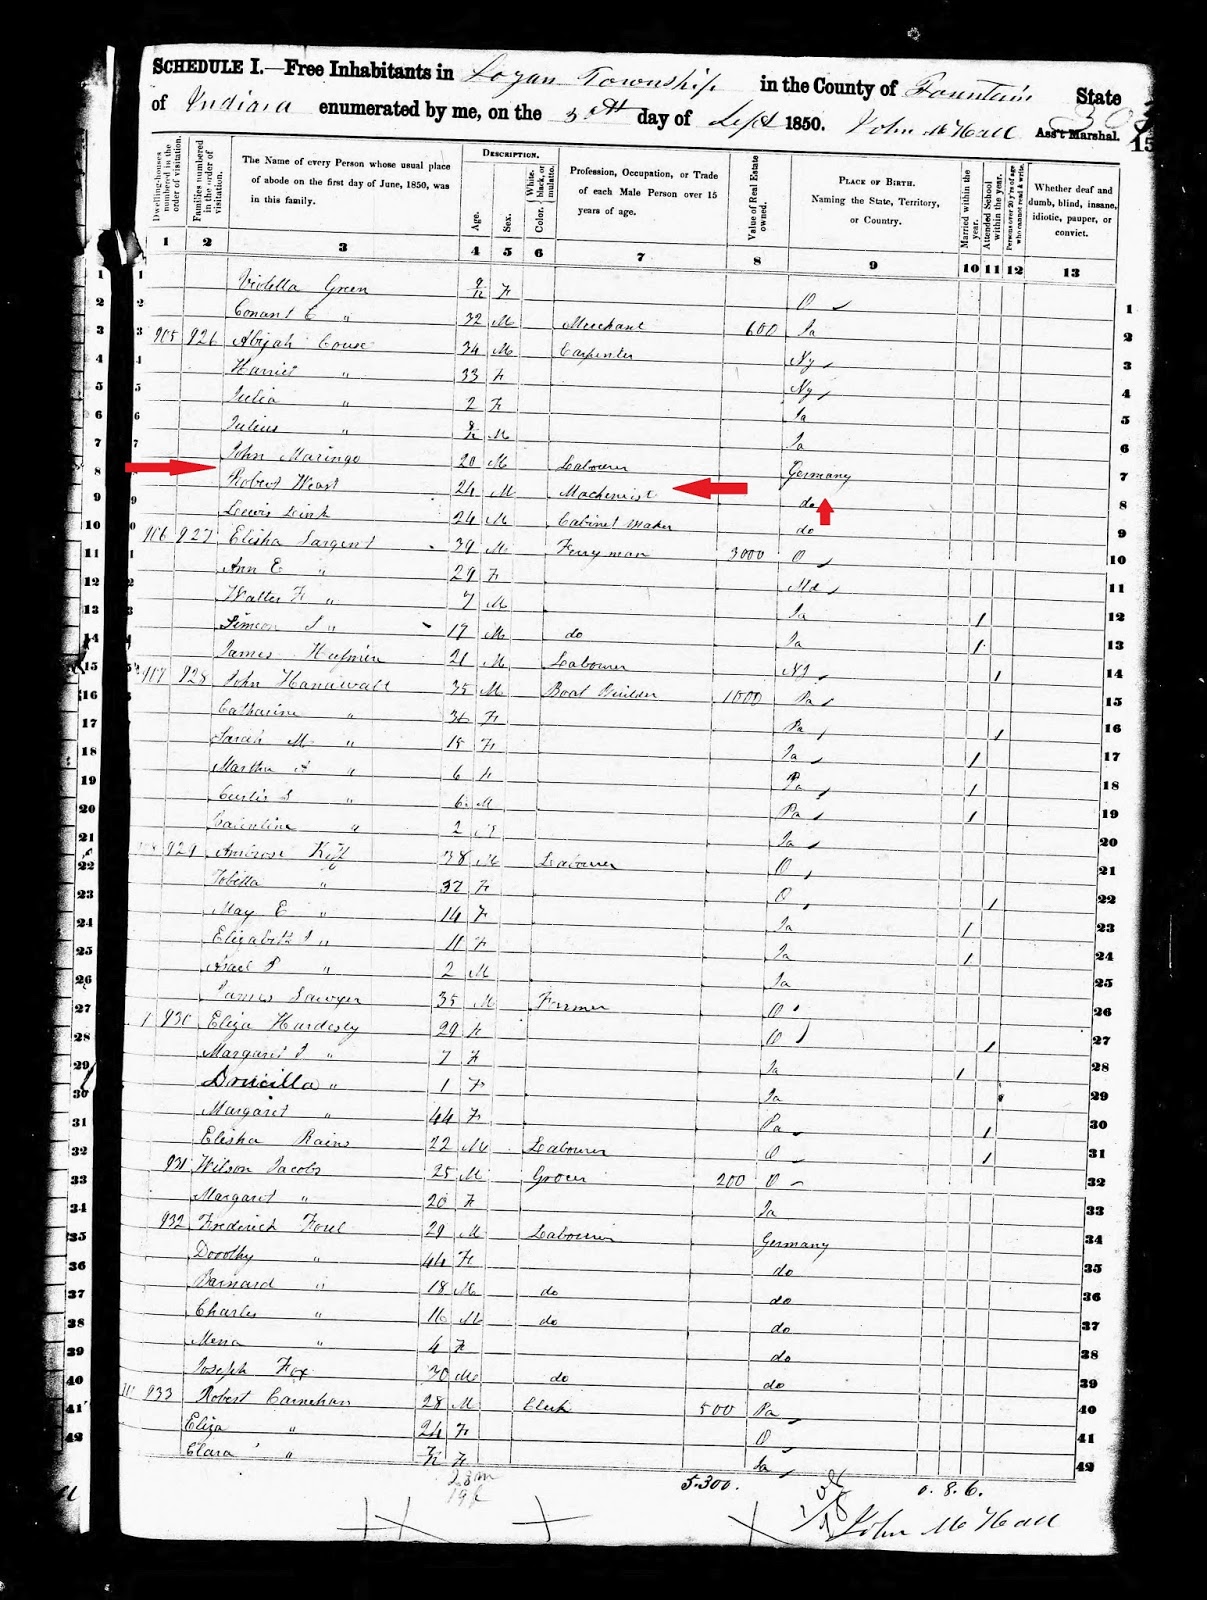 SCHEDULE I.—Free Inhabitants in Logan Township in the County of Fountain State
of Indiana enumerated by me, on the 30th day of Sept 1850. John McHall Ass't Marshal.
Dwelling-houses numbered in the order of visitation. Families numbered in the order of visitation. The Name of every Person whose usual place of abode on the first day of June, 1850, was in this family. DESCRIPTION. Age. Sex. Color, White, black, or mulatto. Profession, Occupation, or Trade of each Male Person over 15 years of age. Value of Real Estate owned. PLACE OF BIRTH. Naming the State, Territory, or Country. Married within the year. Attended School within the year. Persons over 20 y'rs of age who cannot read & write. Whether deaf and dumb, blind, insane, idiotic, pauper, or convict.
1 2 3 4 5 6 7 8 9 10 11 12 13
1 Violella Green 9/12 F O 1
2 Conant C " 32 M Merchant 600 Ia 2
3 905 926 Abijah Couse 34 M Carpenter Ny 3
4 Harriet " 33 F Ny 4
5 Julia " 2 F Ia 5
6 Julius " M Ia 6
7 John Maringo 20 M Labourer Germany 7
8 Robert Weast 24 M Machenist do 8
9 Lewis Link 24 M Cabinet Maker do 9
10 906 927 Elisha Sargent 39 M Ferryman 3000 O 10
11 Ann E " 29 F Md 11
12 Walter F " 7 M Ia 1 12
13 Simeon S " 19 M do Ia 1 13
14 James 21 M Labourer NJ 1 14
15 907 928 John Hanawalt 35 M Boat Builder 1000 Pa 15
16 Catharine " F Pa 1 16
17 Sarah M " 15 F Ia 1 17
18 Martha A " 6 F Pa 1 18
19 Curtis S " 6 M Pa 1 19
20 " 2 Ia 20
21 929 38 M Labourer O 21
22 " 37 F O 1 22
23 May E " 14 F Ia 1 23
24 Elizabeth " 11 F Ia 1 24
25 " 2 M Ia 25
26 James Sawyer 35 M Farmer O 26
27 930 Eliza Hardesty 29 F O 1 27
28 Margaret J " 7 F Ia 1 28
29 Druicilla " 1 F Ia 29
30 Margaret " 44 F Pa 1 30
31 Elisha Rains 22 M Labourer O 1 31
32 931 Wilson Jacobs 25 M Grocer 200 O 32
33 Margaret " 20 F Ia 33
34 932 Frederick 29 M Labourer Germany 34
35 Dorothy " 44 F do 35
36 Barnard " 18 M do do 36
37 Charles " 16 M do do 37
38 Mena " 4 F do 38
39 Joseph Fox 30 M do do 39
40 933 Robert Carnehan 28 M Clerk 500 Pa 40
41 Eliza " 24 F O 41
42 Clara " F Ia 42
23 m
19 f
5.300.
0. 8. 6.
John McHall